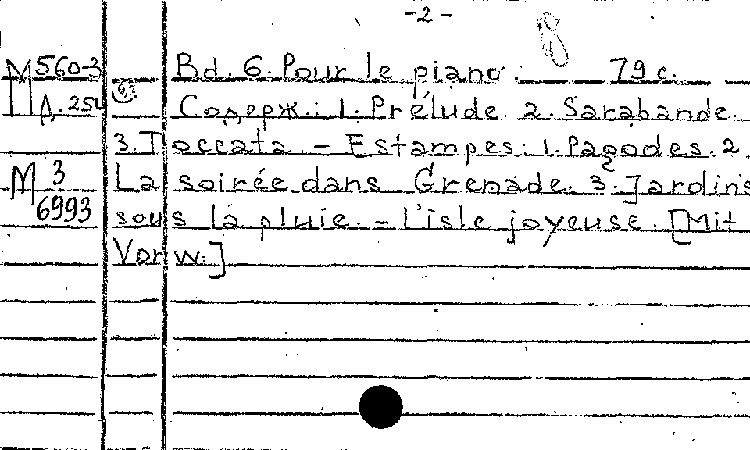 -2-
М560-3 Bd. 6. Pour le piano. 79 c.
Д.25и Содерж.: 1. Prélude 2. Sarabande.
3. Toccata. - Estampes: 1. Pagodes. 2.
М 3 La soirée dans Grenade. 3. Jardins
6993 sous la pluie. - L'isle joyeuse. [Mit
Vorw.]